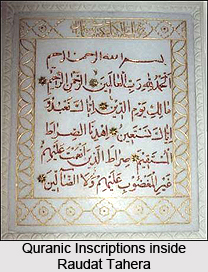 بسم الله الرحمن الرحيم
الحمد لله رب العالمين الرحمن الرحيم
مالك يوم الدين اياك نعبد و
اياك نستعين اهدنا الصراط
المستقيم صراط الذين انعمت عليهم
غير المغضوب عليهم ولا الضالين
Quranic Inscriptions inside
Raudat Tahera